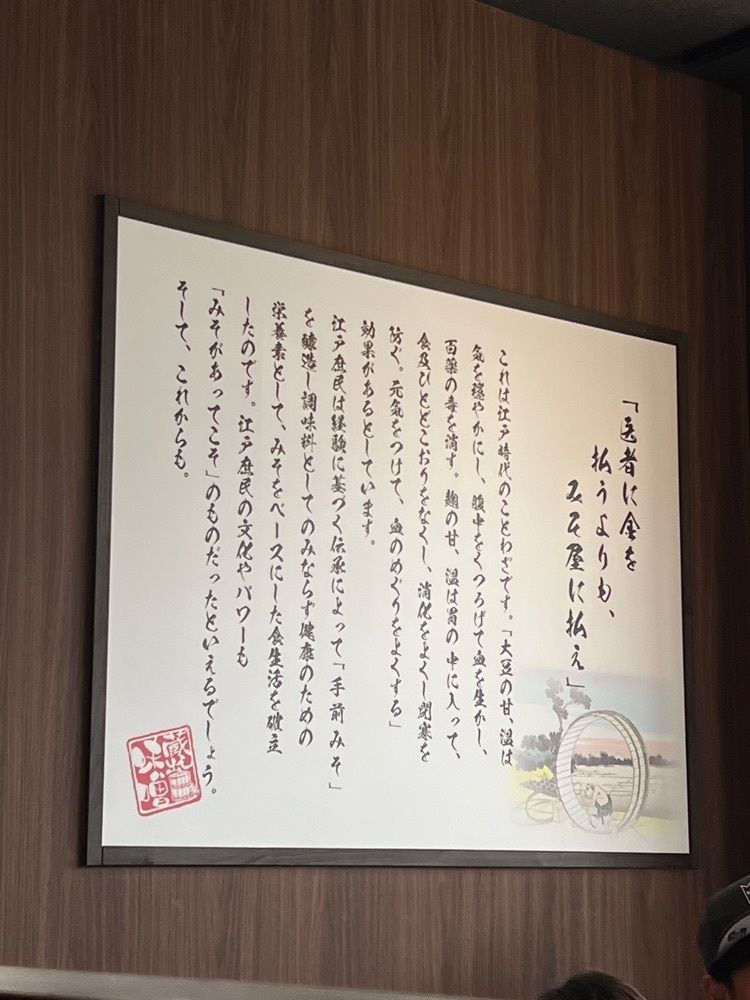 「医者に金を
払うよりも、
みそ屋に払え」
これは江戸時代のことわざです。「大豆の甘、温は
気を穏やかにし、腹中をくつろげて血を生かし、
百薬の毒を消す。麹の甘、温は胃の中に入って、
食及びとどこおりをなくし、消化をよくし閉塞を
防ぐ。元気をつけて、血のめぐりをよくする」
効果があるとしています。
江戸庶民は経験に基づく伝承によって「手前みそ」
を醸造し調味料としてのみならず健康のための
栄養素として、みそをベースにした食生活を確立
したのです。江戸庶民の文化やパワーも
「みそがあってこそ」のものだったといえるでしょう。
そして、これからも。
蔵出
味噌